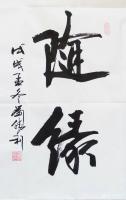 随缘
戊戌孟冬